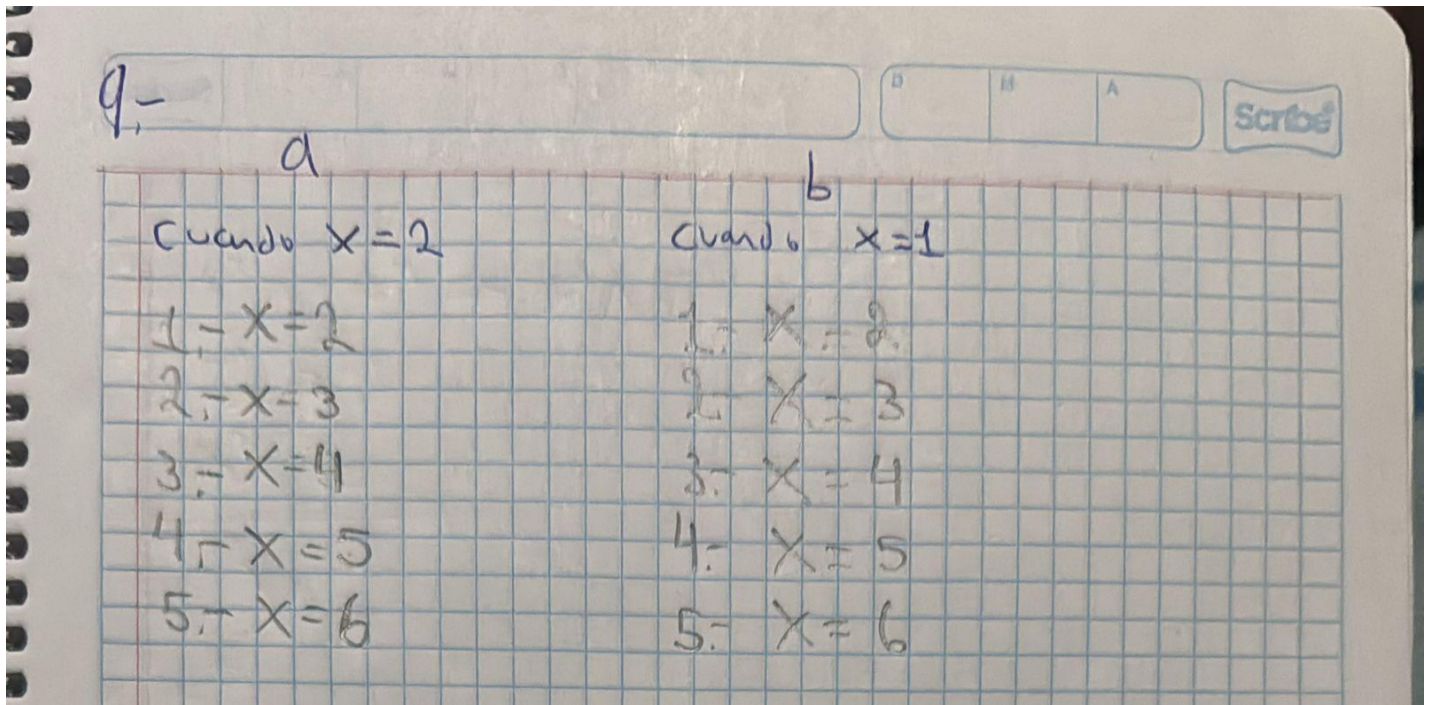 9.-
D M A
Scribe
a
Cuando x=2
1.- X=2
2.- X=3
3.- X=4
4.- X=5
5.- X=6
b
Cuando x=1
1.- X=2
2- X=3
3.- X=4
4.- X=5
5.- X=6